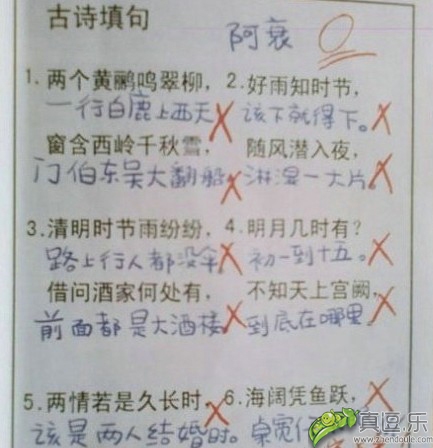 古诗填句
阿衰
0
1.两个黄鹂鸣翠柳，2.好雨知时节，
一行白鹿上西天 该下就得下。
窗含西岭千秋雪， 随风潜入夜，
门伯东吴大翻船 淋湿一大片。
3.清明时节雨纷纷，4.明月几时有？
路上行人都没伞 初一到十五。
借问酒家何处有， 不知天上宫阙，
前面都是大酒楼 到底在哪里
5.两情若是久长时，6.海阔凭鱼跃，
该是两人结婚时。
真逗乐
www.zhendoule.com